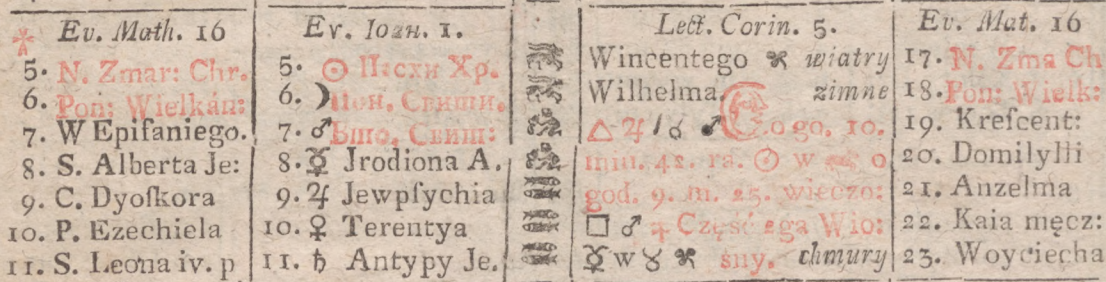 Ev. Math. 16
5. N. Zmar: Chr.
6. Pon: Wielkán:
7. W Epifaniego.
8. S. Alberta Je:
9. C. Dyoſkora
10. P. Ezechiela
11. S. Leona iv. p
Ev. Ioan. 1.
5. ☉ Пасхи Хр.
6. ☽ Пон, Свѣтли.
7. ♂ Свѣт:
8. ☿ Jrodiona A.
9. ♃ Jewpſychia
10. ♀ Terentya
11. ♄ Antypy Je.
Lect. Corin. 5.
Wincentego wiatry
Wilhelma. zimne
△ ♃ ☌ ♂ ☾ o go. 10.
min. 42. ra. ☉ w o
god. 9. m. 25. wieczo:
□ ♂ ♃ Część Wio:
☿ w ♉ sny. chmury
Ev. Mat. 16
17. N. Zma Ch
18. Pon: Wielk:
19. Kreſcent:
20. Domilylli
21. Anzelma
22. Kaia męcz:
23. Woyciecha